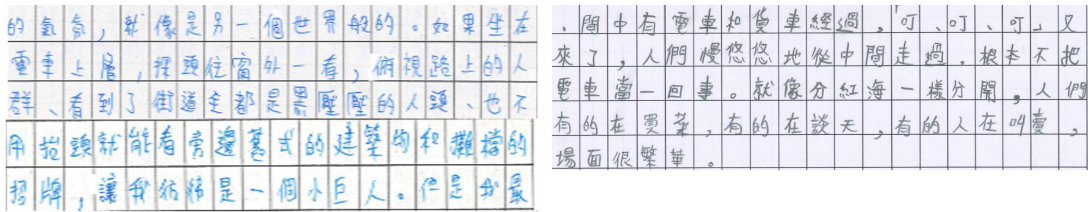 的氣氛,就像是另一個世界般的。如果坐在
電車上層,探頭往窗外一看,俯視路上的人
群、看到了街道全都是黑壓壓的人頭、也不
用抬頭就能看旁邊舊式的建築物和攤檔的
招牌,讓我彷彿是一個小巨人。但是我最
.間中有電車和貨車經過,「叮、叮、叮」又
來了,人們慢悠悠地從中間走過,根本不把
電車當一回事。就像分紅海一樣分開,人們
有的在買菜,有的在談天,有的人在叫賣,
場面很繁華。